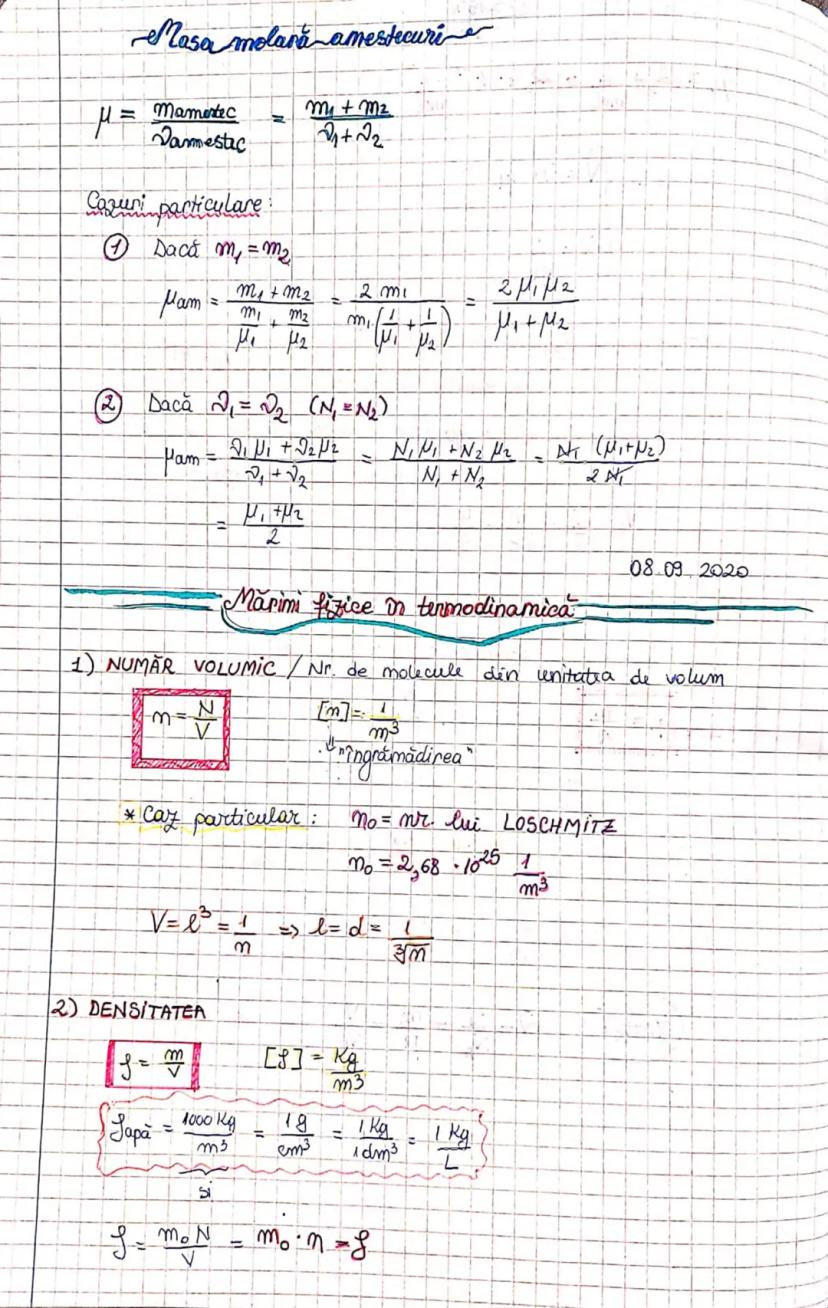 Masa molară amestecuri
μ = mamestec / νamestec = m1 + m2 / ν1 + ν2
Cazuri particulare:
① Dacă m1 = m2
μam = m1 + m2 / (m1/μ1 + m2/μ2) = 2 m1 / m1(1/μ1 + 1/μ2) = 2 μ1 μ2 / μ1 + μ2
② Dacă ν1 = ν2 (N1 = N2)
μam = ν1 μ1 + ν2 μ2 / ν1 + ν2 = N1 μ1 + N2 μ2 / N1 + N2 = N1 (μ1 + μ2) / 2 N1
= μ1 + μ2 / 2
08.09.2020
Mărimi fizice în termodinamică
1) NUMĂR VOLUMIC / Nr. de molecule din unitatea de volum
n = N/V [n] = 1/m³
⇓ "îngrămădirea"
* Caz particular: n0 = nr. lui LOSCHMITZ
n0 = 2,68 · 10²⁵ 1/m³
V = l³ = 1/n => l = d = 1/∛n
2) DENSITATEA
ρ = m/V [ρ] = Kg/m³
ρapă = 1000 Kg/m³ = 1 g/cm³ = 1 Kg/1 dm³ = 1 Kg/L
Si
ρ = m0 N/V = m0 · n = ρ